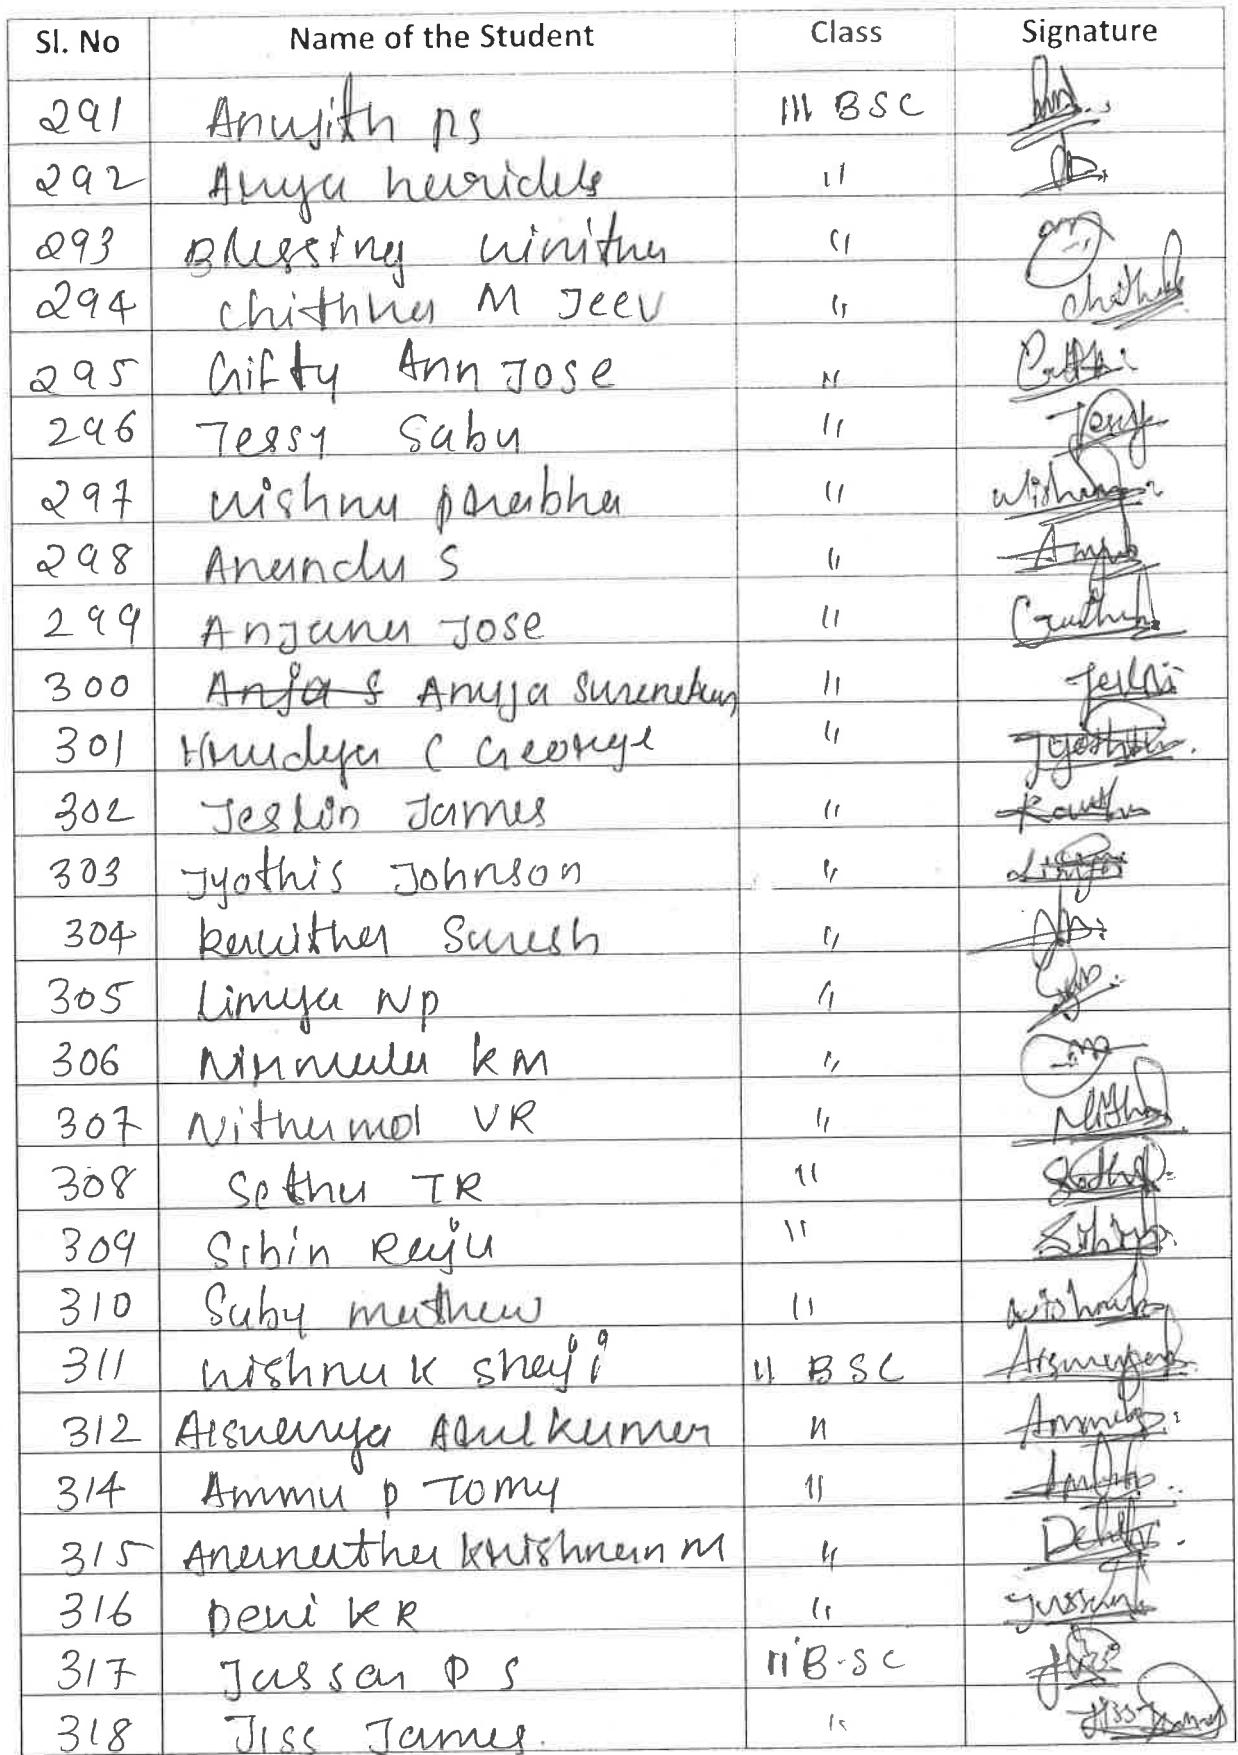 Sl. No Name of the Student Class Signature
291 Anujith PS III BSC
292 Anya haridas "
293 Blessing vinitha " 
294 Chithra M Jeev " Chithra
295 Gifty Ann Jose "
296 Tessy Sabu " Tessy
297 vishnu prabha " Vishnu
298 Anandu S "
299 Anjana Jose "
300 Anja S Anuja Surendran " Jeslin
301 Hrudya C George " Jyothis
302 Jeslin James " Kavitha
303 Jyothis Johnson " Limya
304 kavitha Suresh "
305 Limya NP "
306 Nirmala KM "
307 Nithumol VR " Nithu
308 Sethu TR " Sethu
309 Sibin Raju " Sibin
310 Suby mathew " Vishnu
311 vishnu K shaji II BSC
312 Aiswarya Anilkumar " Ammu
314 Ammu P Tomy "
315 Ananthu Krishnan M "
316 Devi KR " Jussan
317 Jussan P S II B.SC
318 Jiss James. " Jiss James